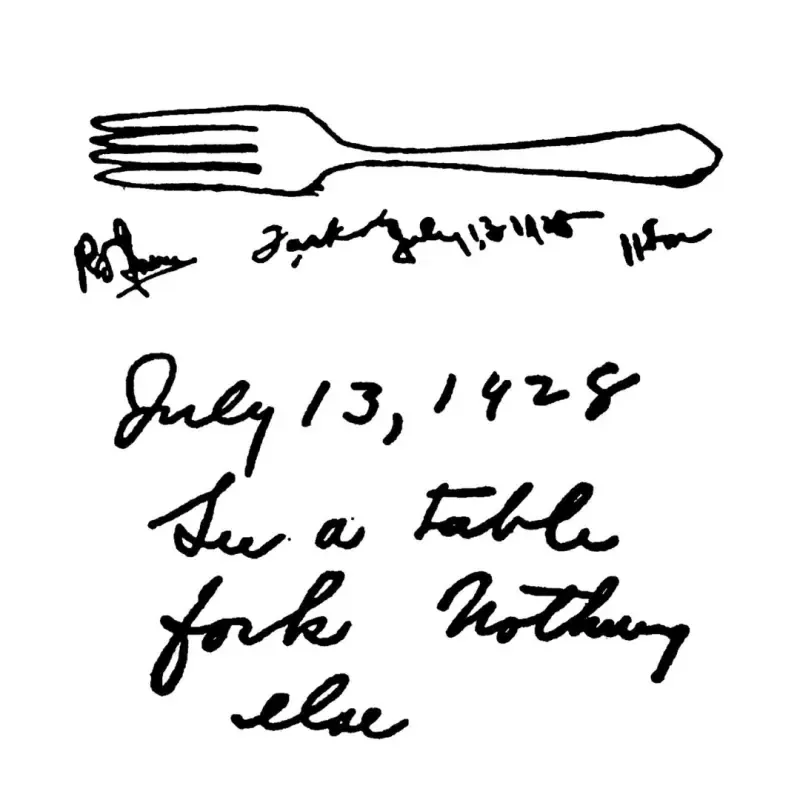 Fork July 13 1928
July 13, 1928
See a table
fork Nothing
else